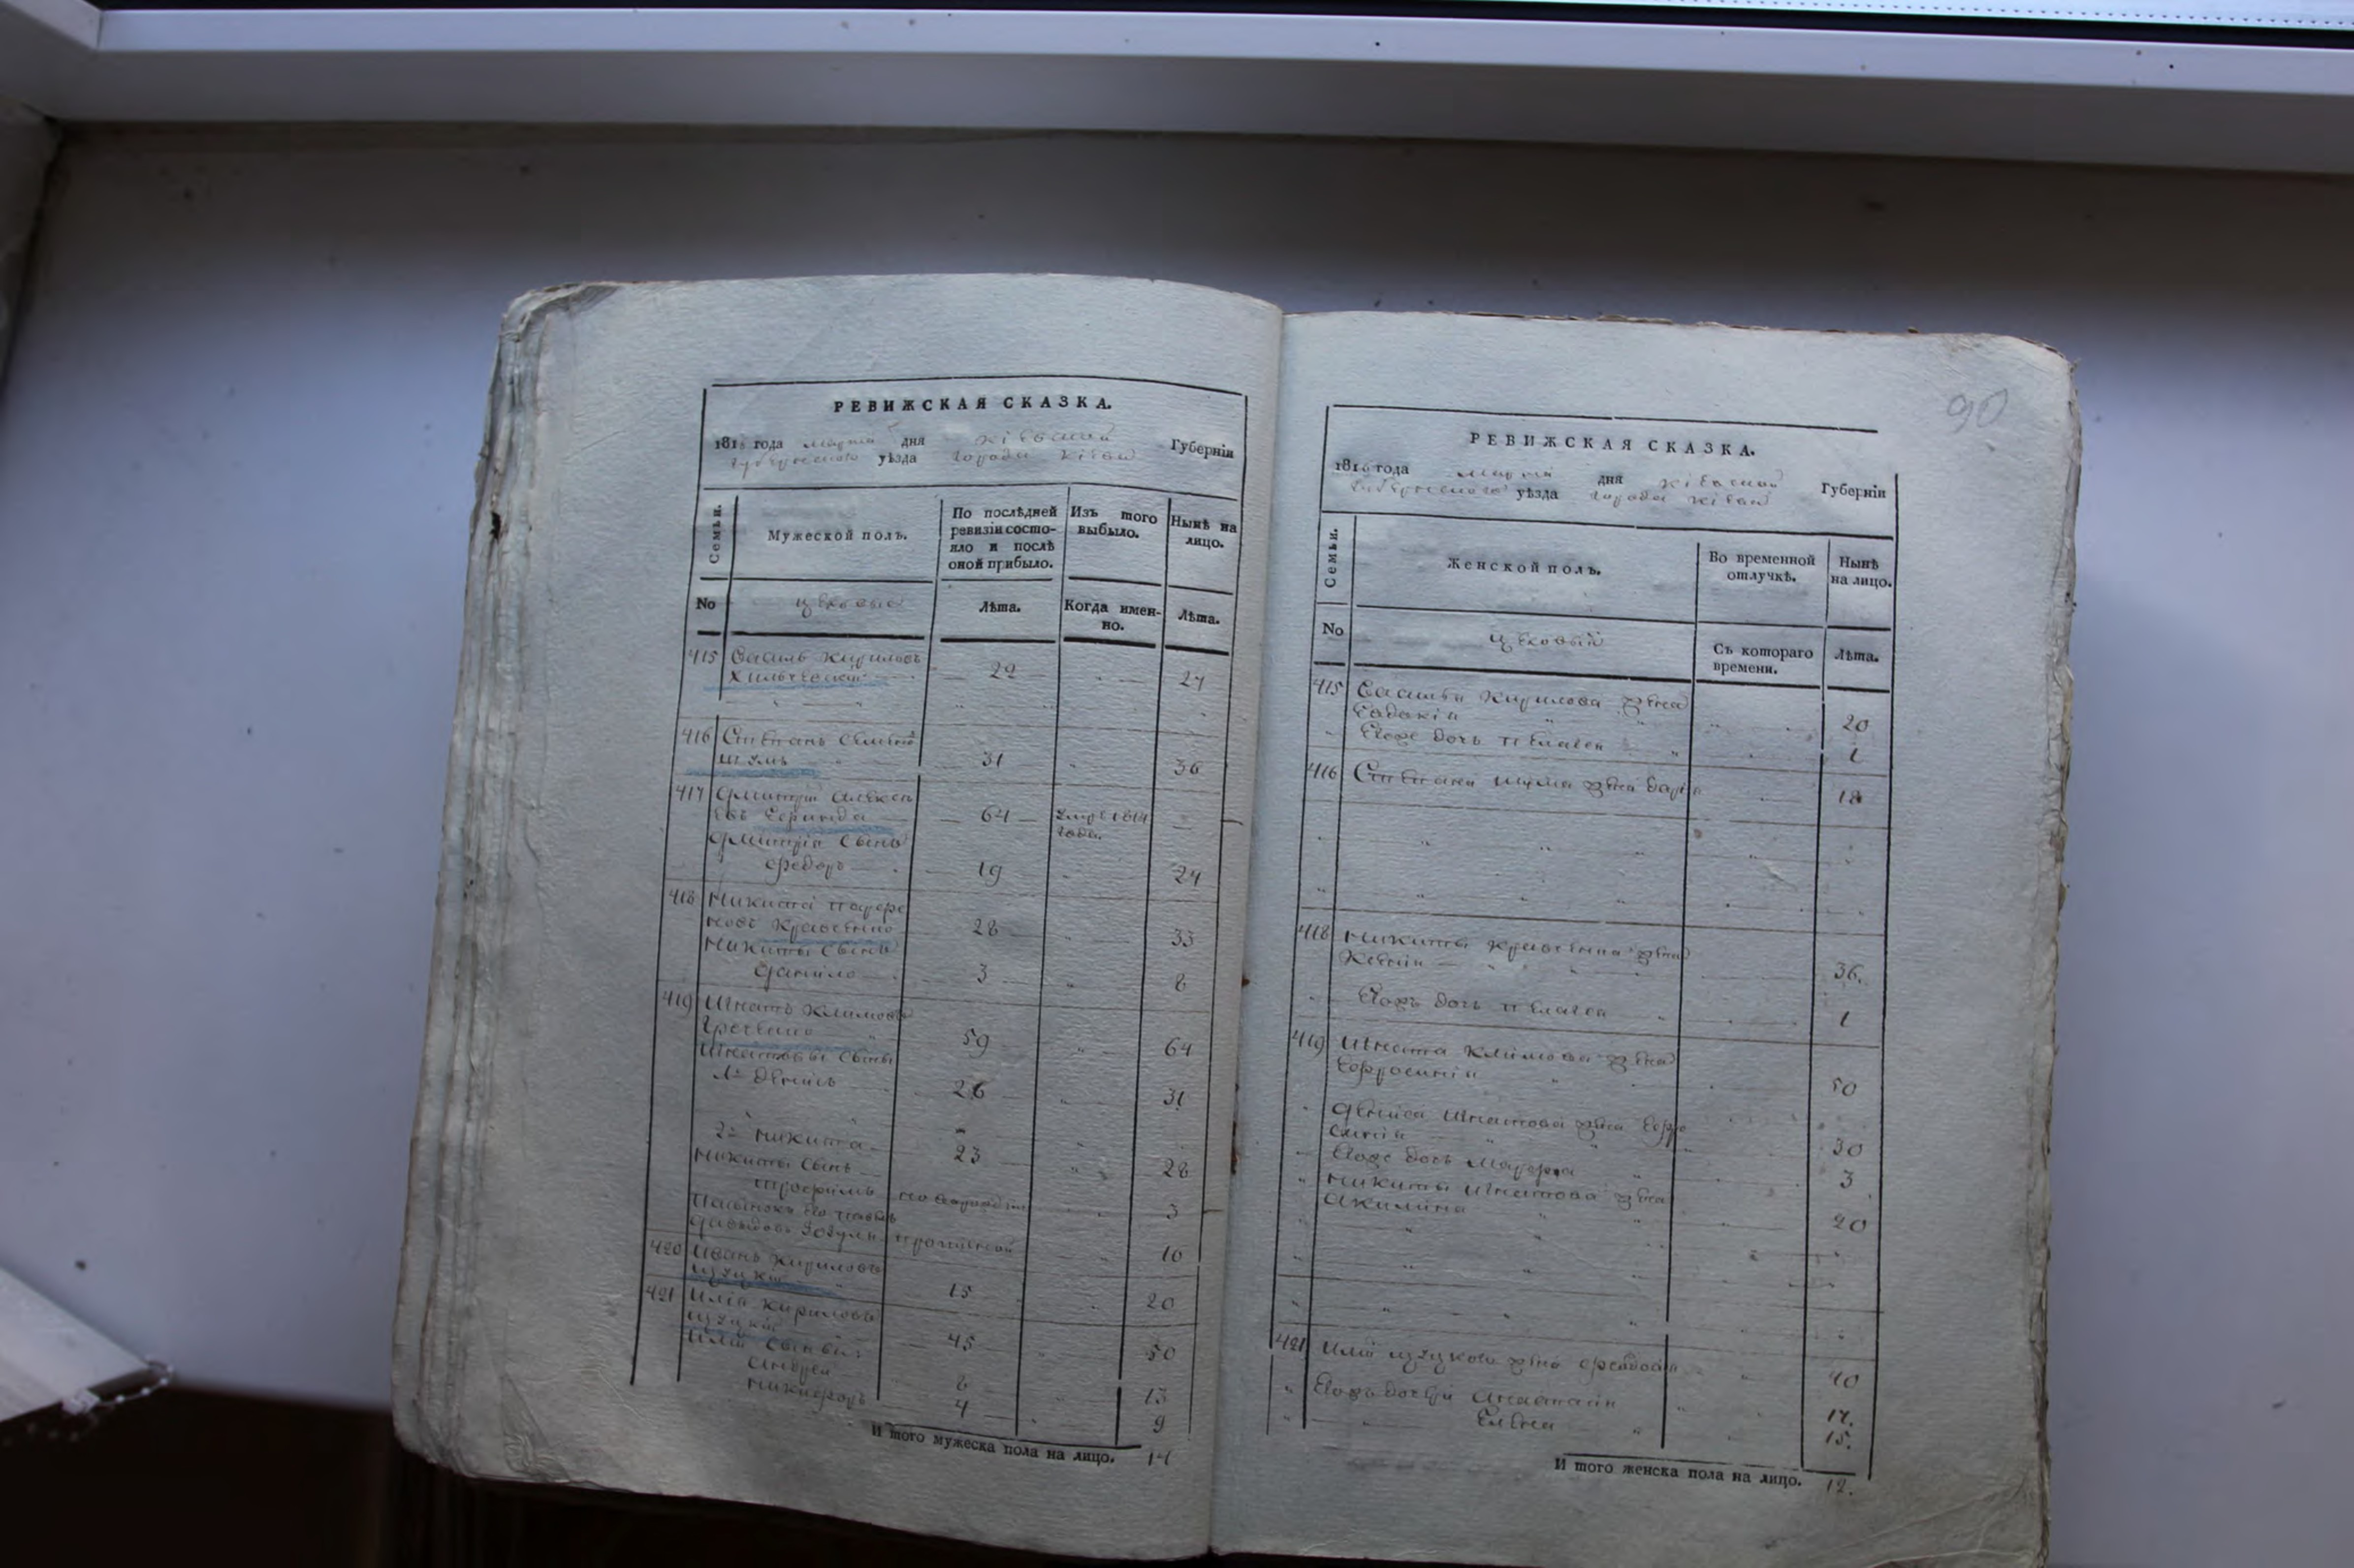 РЕВИЖСКАЯ СКАЗКА.
1816 года марта дня кіевской Губерніи
губернскаго уѣзда города Кіева
Семьи.
Мужеской полъ.
По послѣдней ревизіи состо-
яло и послѣ
оной прибыло.
Изъ того
выбыло.
Нынѣ на
лицо.
No
цеховые
Лѣта.
Когда имен-
но.
Лѣта.
415 Василь Кириловъ
22 27
416 Степанъ
Шумъ 31 36
417 Дмитрій Алексѣ
евъ 64 умре 1814
года.
Дмитрія сынъ
Федоръ 19 24
418 Никита
Кравченко 28 33
Никиты сынъ
Данило 3 8
419 Игнатъ Климовъ
59 64
Игнатовы сыны
1й Денисъ 26 31
2й Никита 23 28
Никиты сынъ
Трофимъ 3
Давыдовъ 10
420 Иванъ Кириловъ
15 20
421 Илія Кириловъ
45 50
Иліи сыновья
Андрей 8 13
Никифоръ 4 9
И того мужеска пола на лицо. 14
90
РЕВИЖСКАЯ СКАЗКА.
1816 года марта дня кіевской Губерніи
губернскаго уѣзда города Кіева
Семьи.
Женской полъ.
Во временной
отлучкѣ.
Нынѣ
на лицо.
No
цеховыи
Съ котораго
времени.
Лѣта.
415 Василья Кирилова жена
Евдокія 20
Егоже дочь Пелагея 1
416 Степана Шума жена Дарья 18
418 Никиты Кравченка жена
Ксенія 36.
Егожъ дочь Пелагея 1
419 Игната Климова жена
Ефросинія 50
Дениса Игнатова жена Ефро
синія 30
Егоже дочь Марфа 3
Никиты Игнатова жена
Акилина 20
421 Иліи жена Феодосія 40
Егожъ дочери Анастасія 17.
Елена 15.
И того женска пола на лицо. 12.